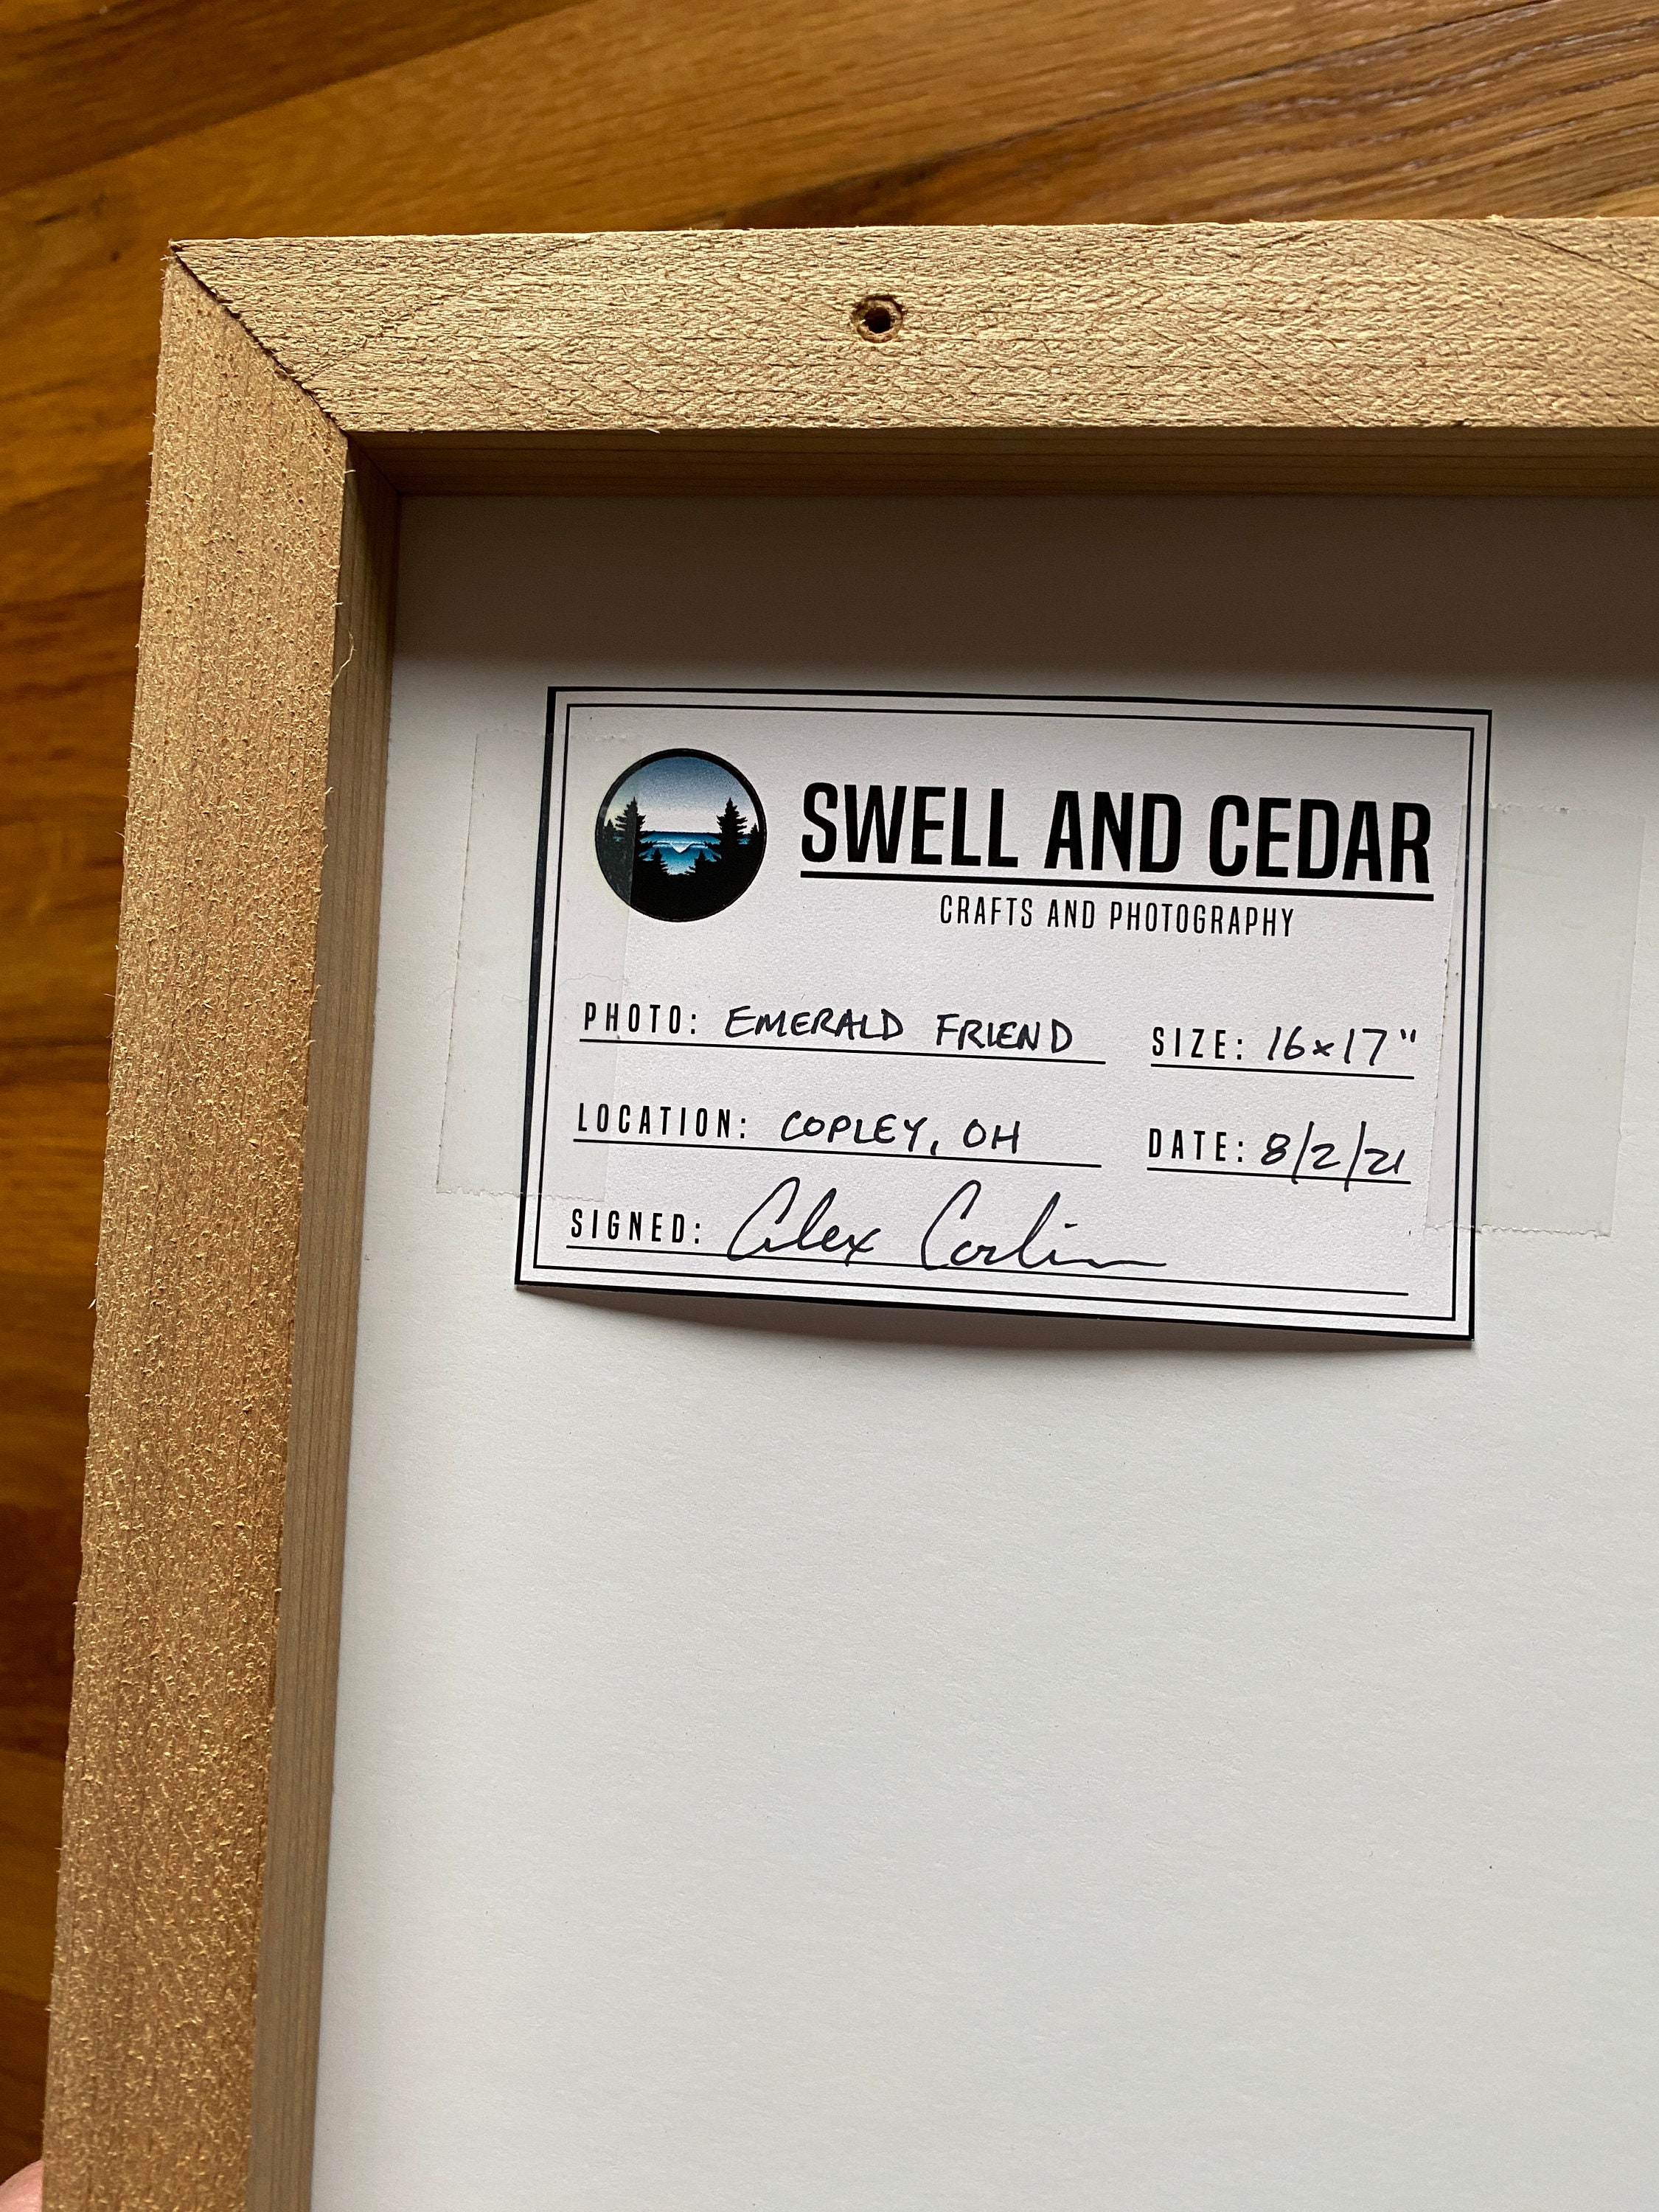 SWELL AND CEDAR
CRAFTS AND PHOTOGRAPHY
PHOTO: EMERALD FRIEND SIZE: 16x17"
LOCATION: COPLEY, OH DATE: 8/2/21
SIGNED: Alex Corlin